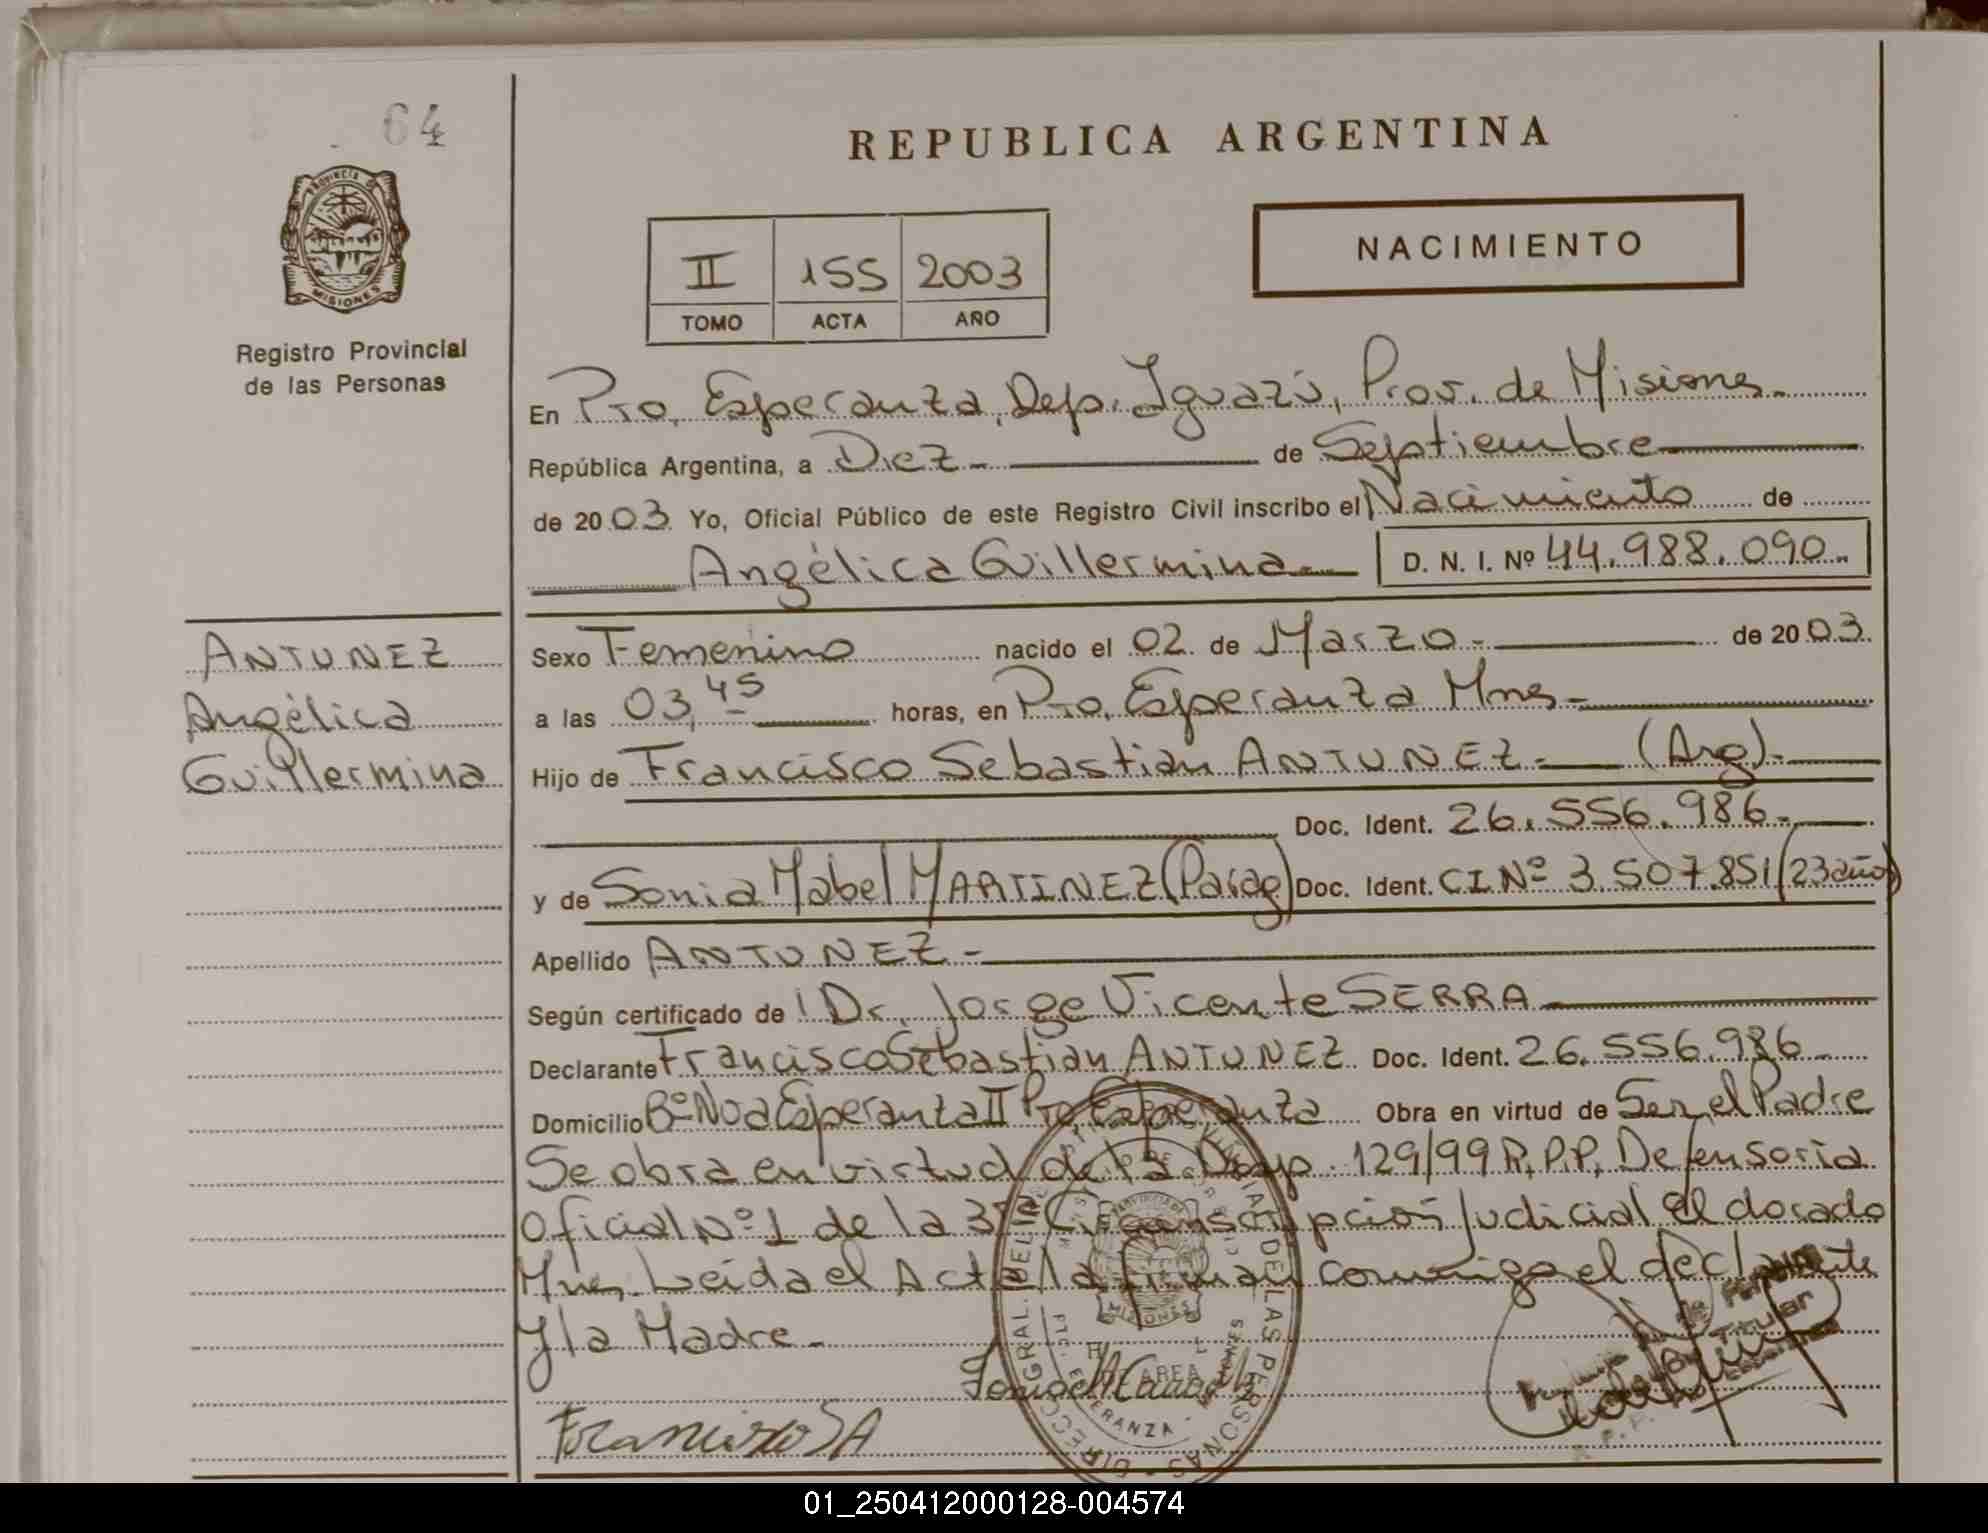 64
REPUBLICA ARGENTINA
PROVINCIA DE
MISIONES
Registro Provincial
de las Personas
II 155 2003
TOMO ACTA AÑO
NACIMIENTO
En Pto. Esperanza, Dep. Iguazú, Prov. de Misiones.-
República Argentina, a Diez.- de Septiembre
de 2003 Yo, Oficial Público de este Registro Civil inscribo el Nacimiento de
Angélica Guillermina.- D. N. I. Nº 44.988.090.-
ANTUNEZ
Angélica
Guillermina
Sexo Femenino nacido el 02 de Marzo.- de 2003.
a las 03,45 horas, en Pto. Esperanza Mnes.-
Hijo de Francisco Sebastian ANTUNEZ.- (Arg).-
Doc. Ident. 26.556.986.-
y de Sonia Mabel MARTINEZ (Parag) Doc. Ident. CI Nº 3.507.851 (23 años)
Apellido ANTUNEZ.-
Según certificado de Dr. Jorge Vicente SERRA.-
Declarante Francisco Sebastian ANTUNEZ Doc. Ident. 26.556.986.-
Domicilio Bº Nva Esperanza II Pto. Esperanza Obra en virtud de Ser el Padre
Se obra en virtud de la Disp. 129/99 R.P.P. Defensoria
Oficial Nº 1 de la 3ª Circunscripción Judicial Eldorado
Mnes. Leida el Acta la firman conmigo el declarante
y la Madre.-
Francisco SA
01_250412000128-004574